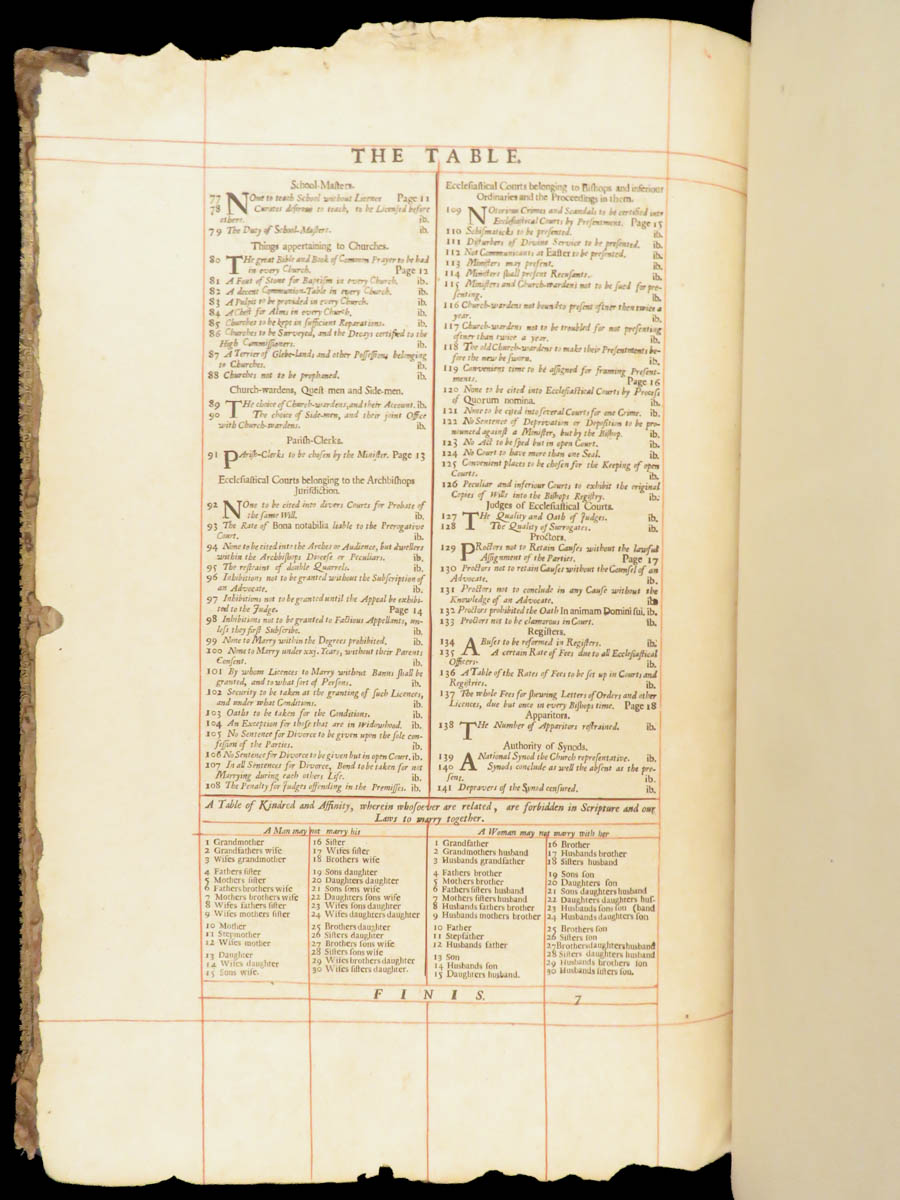 THE TABLE.
School-Masters.
77 NOne to teach School without Licence Page 11
78 Curates desirous to teach, to be Licensed before
others. ib.
79 The Duty of School-Masters. ib.
Things appertaining to Churches.
80 THe great Bible and Book of Common Prayer to be had
in every Church. Page 12
81 A Font of Stone for Baptism in every Church. ib.
82 A decent Communion-Table in every Church. ib.
83 A Pulpit to be provided in every Church. ib.
84 A Chest for Alms in every Church. ib.
85 Churches to be kept in sufficient Reparations. ib.
86 Churches to be Surveyed, and the Decays certified to the
High Commissioners. ib.
87 A Terrier of Glebe-lands and other Possessions belonging
to Churches. ib.
88 Churches not to be prophaned. ib.
Church-wardens, Quest men and Side-men.
89 THe choice of Church-wardens, and their Account. ib.
90 The choice of Side-men, and their joint Office
with Church-wardens. ib.
Parish-Clerks.
91 PArish-Clerks to be chosen by the Minister. Page 13
Ecclesiastical Courts belonging to the Archbishops
Jurisdiction.
92 NOne to be cited into divers Courts for Probate of
the same Will. ib.
93 The Rate of Bona notabilia liable to the Prerogative
Court. ib.
94 None to be cited into the Arches or Audience, but dwellers
within the Archbishops Diocese or Peculiars. ib.
95 The restraint of double Quarrels. ib.
96 Inhibitions not to be granted without the Subscription of
an Advocate. ib.
97 Inhibitions not to be granted until the Appeal be exhibi-
ted to the Judge. Page 14
98 Inhibitions not to be granted to Factious Appellants, un-
less they first Subscribe. ib.
99 None to Marry within the Degrees prohibited. ib.
100 None to Marry under xxj. Years, without their Parents
Consent. ib.
101 By whom Licences to Marry without Banns shall be
granted, and to what sort of Persons. ib.
102 Security to be taken at the granting of such Licences,
and under what Conditions. ib.
103 Oaths to be taken for the Conditions. ib.
104 An Exception for those that are in Widowhood. ib.
105 No Sentence for Divorce to be given upon the sole con-
fession of the Parties. ib.
106 No Sentence for Divorce to be given but in open Court. ib.
107 In all Sentences for Divorce, Bond to be taken for not
Marrying during each others Life. ib.
108 The Penalty for Judges offending in the Premisses. ib.
Ecclesiastical Courts belonging to Bishops and inferiour
Ordinaries and the Proceedings in them.
109 NOtorious Crimes and Scandals to be certified into
Ecclesiastical Courts by Presentment. Page 15
110 Schismaticks to be presented. ib.
111 Disturbers of Devine Service to be presented. ib.
112 Not Communicants at Easter to be presented. ib.
113 Ministers may present. ib.
114 Ministers shall present Recusants. ib.
115 Ministers and Church-wardens not to be sued for pre-
senting. ib.
116 Church-wardens not bound to present oftner then twice a
year. ib.
117 Church-wardens not to be troubled for not presenting
oftner than twice a year. ib.
118 The old Church-wardens to make their Presentments be-
fore the new be sworn. ib.
119 Convenient time to be assigned for framing Present-
ments. Page 16
120 None to be cited into Ecclesiastical Courts by Process
of Quorum nomina. ib.
121 None to be cited into several Courts for one Crime. ib.
122 No Sentence of Deprivation or Deposition to be pro-
nounced against a Minister, but by the Bishop. ib.
123 No Act to be sped but in open Court. ib.
124 No Court to have more than one Seal. ib.
125 Convenient places to be chosen for the Keeping of open
Courts. ib.
126 Peculiar and inferiour Courts to exhibit the original
Copies of Wills into the Bishops Registry. ib.
Judges of Ecclesiastical Courts.
127 THe Quality and Oath of Judges. ib.
128 The Quality of Surrogates. ib.
Proctors.
129 PRoctors not to Retain Causes without the lawful
Assignment of the Parties. Page 17
130 Proctors not to retain Causes without the Counsel of an
Advocate. ib.
131 Proctors not to conclude in any Cause without the
Knowledge of an Advocate. ib.
132 Proctors prohibited the Oath In animam Domini sui. ib.
133 Proctors not to be clamorous in Court. ib.
Registers.
134 ABuses to be reformed in Registers. ib.
135 A certain Rate of Fees due to all Ecclesiastical
Officers. ib.
136 A Table of the Rates of Fees to be set up in Courts and
Registries. ib.
137 The whole Fees for shewing Letters of Orders and other
Licences, due but once in every Bishops time. Page 18
Apparitors.
138 THe Number of Apparitors restrained. ib.
Authority of Synods.
139 A National Synod the Church representative. ib.
140 Synods conclude as well the absent as the pre-
sent. ib.
141 Depravers of the Synod censured. ib.
A Table of Kindred and Affinity, wherein whosoever are related, are forbidden in Scripture and our
Laws to marry together.
A Man may not marry his
1 Grandmother
2 Grandfathers wife
3 Wifes grandmother
4 Fathers sister
5 Mothers sister
6 Fathers brothers wife
7 Mothers brothers wife
8 Wifes fathers sister
9 Wifes mothers sister
10 Mother
11 Stepmother
12 Wifes mother
13 Daughter
14 Wifes daughter
15 Sons wife.
16 Sister
17 Wifes sister
18 Brothers wife
19 Sons daughter
20 Daughters daughter
21 Sons sons wife
22 Daughters sons wife
23 Wifes sons daughter
24 Wifes daughters daughter
25 Brothers daughter
26 Sisters daughter
27 Brothers sons wife
28 Sisters sons wife
29 Wifes brothers daughter
30 Wifes sisters daughter.
A Woman may not marry with her
1 Grandfather
2 Grandmothers husband
3 Husbands grandfather
4 Fathers brother
5 Mothers brother
6 Fathers sisters husband
7 Mothers sisters husband
8 Husbands fathers brother
9 Husbands mothers brother
10 Father
11 Stepfather
12 Husbands father
13 Son
14 Husbands son
15 Daughters husband.
16 Brother
17 Husbands brother
18 Sisters husband
19 Sons son
20 Daughters son
21 Sons daughters husband
22 Daughters daughters hus-
23 Husbands sons son (band
24 Husbands daughters son
25 Brothers son
26 Sisters son
27 Brothers daughters husband
28 Sisters daughters husband
29 Husbands brothers son
30 Husbands sisters son.
FINIS.
7